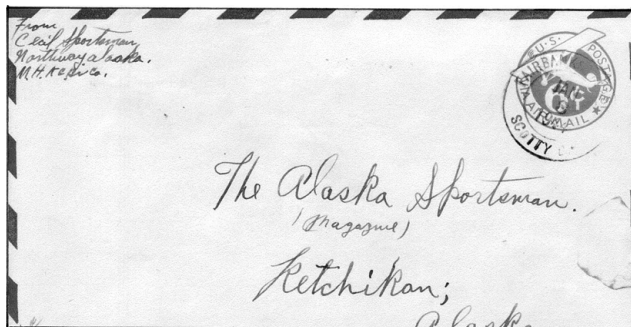 From
Cecil Sportsman,
Northway alaska.
M.H.
U.S. POSTAGE
FAIRBANKS
JAN
6
AIRMAIL
SCOTTY
The Alaska Sportsman.
(Magazine)
Ketchikan;
Alaska